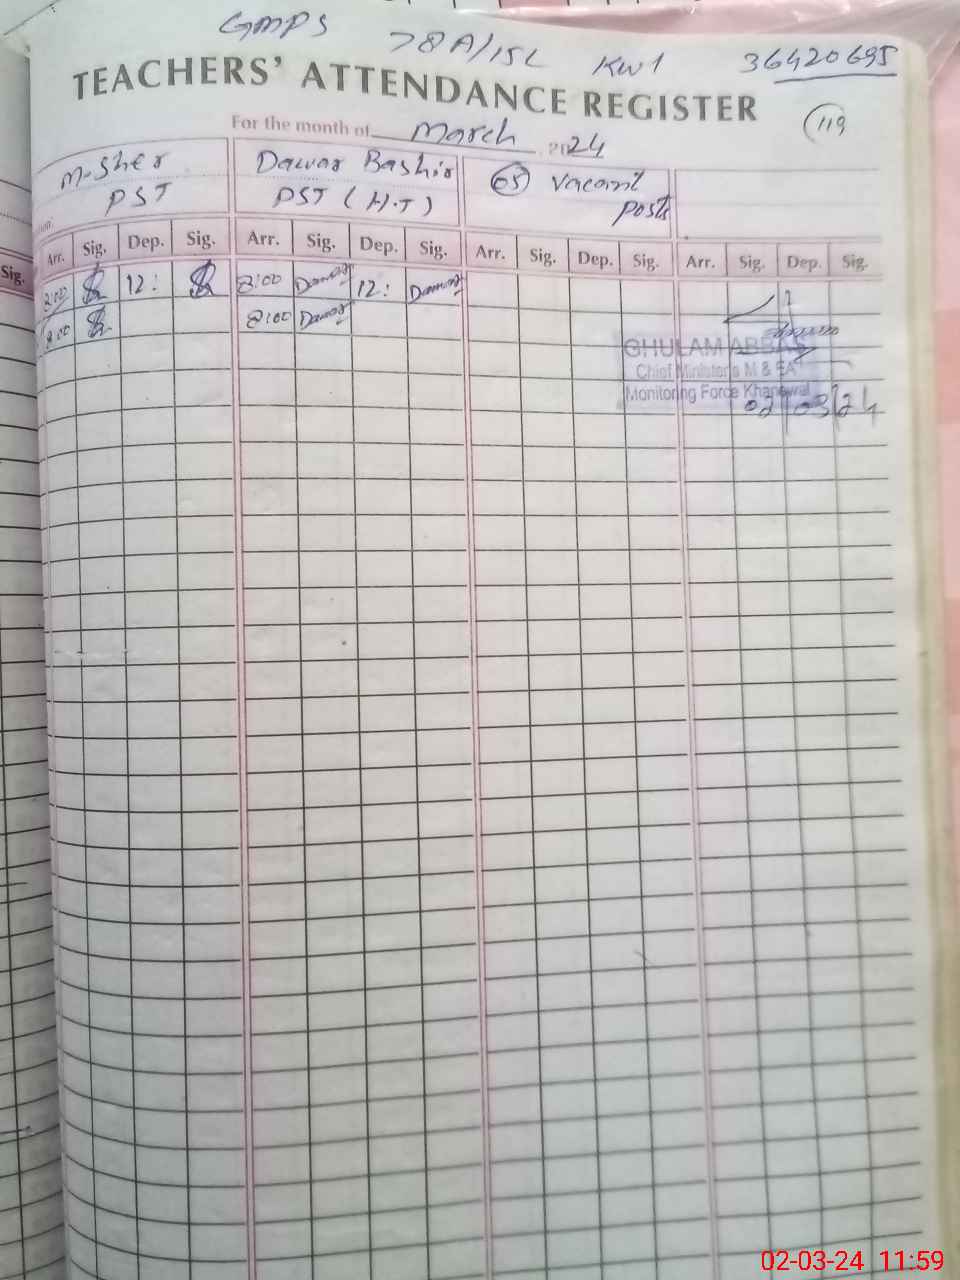 GMPS 78A/15L KW1 36420695
TEACHERS' ATTENDANCE REGISTER
119
For the month of March 2024
M-Sher Dawar Bashir 65 Vacant
PST PST (H.T) Posts
Sig. Arr. Sig. Dep. Sig. Arr. Sig. Dep. Sig. Arr. Sig. Dep. Sig. Arr. Sig. Dep. Sig.
8:00 12: 8:00 Dawar 12: Dawar
8:00 8:00 Dawar
GHULAM ABBAS
Chief Minister's M & EA
Monitoring Force Khanewal
02/03/24
02-03-24 11:59